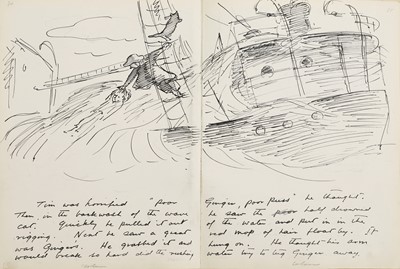 Tim was horrified "Poor Ginger, poor Puss" he thought.
Then, in the backwash of the wave he saw the poor half drowned
cat. Quickly he pulled it out of the water and put in in the
rigging. Next he saw a great red mop of hair float by. It
was Gingers. He grabbed it and hung on. He thought his arm
would break so hard did the rushing water try to tug Ginger away.